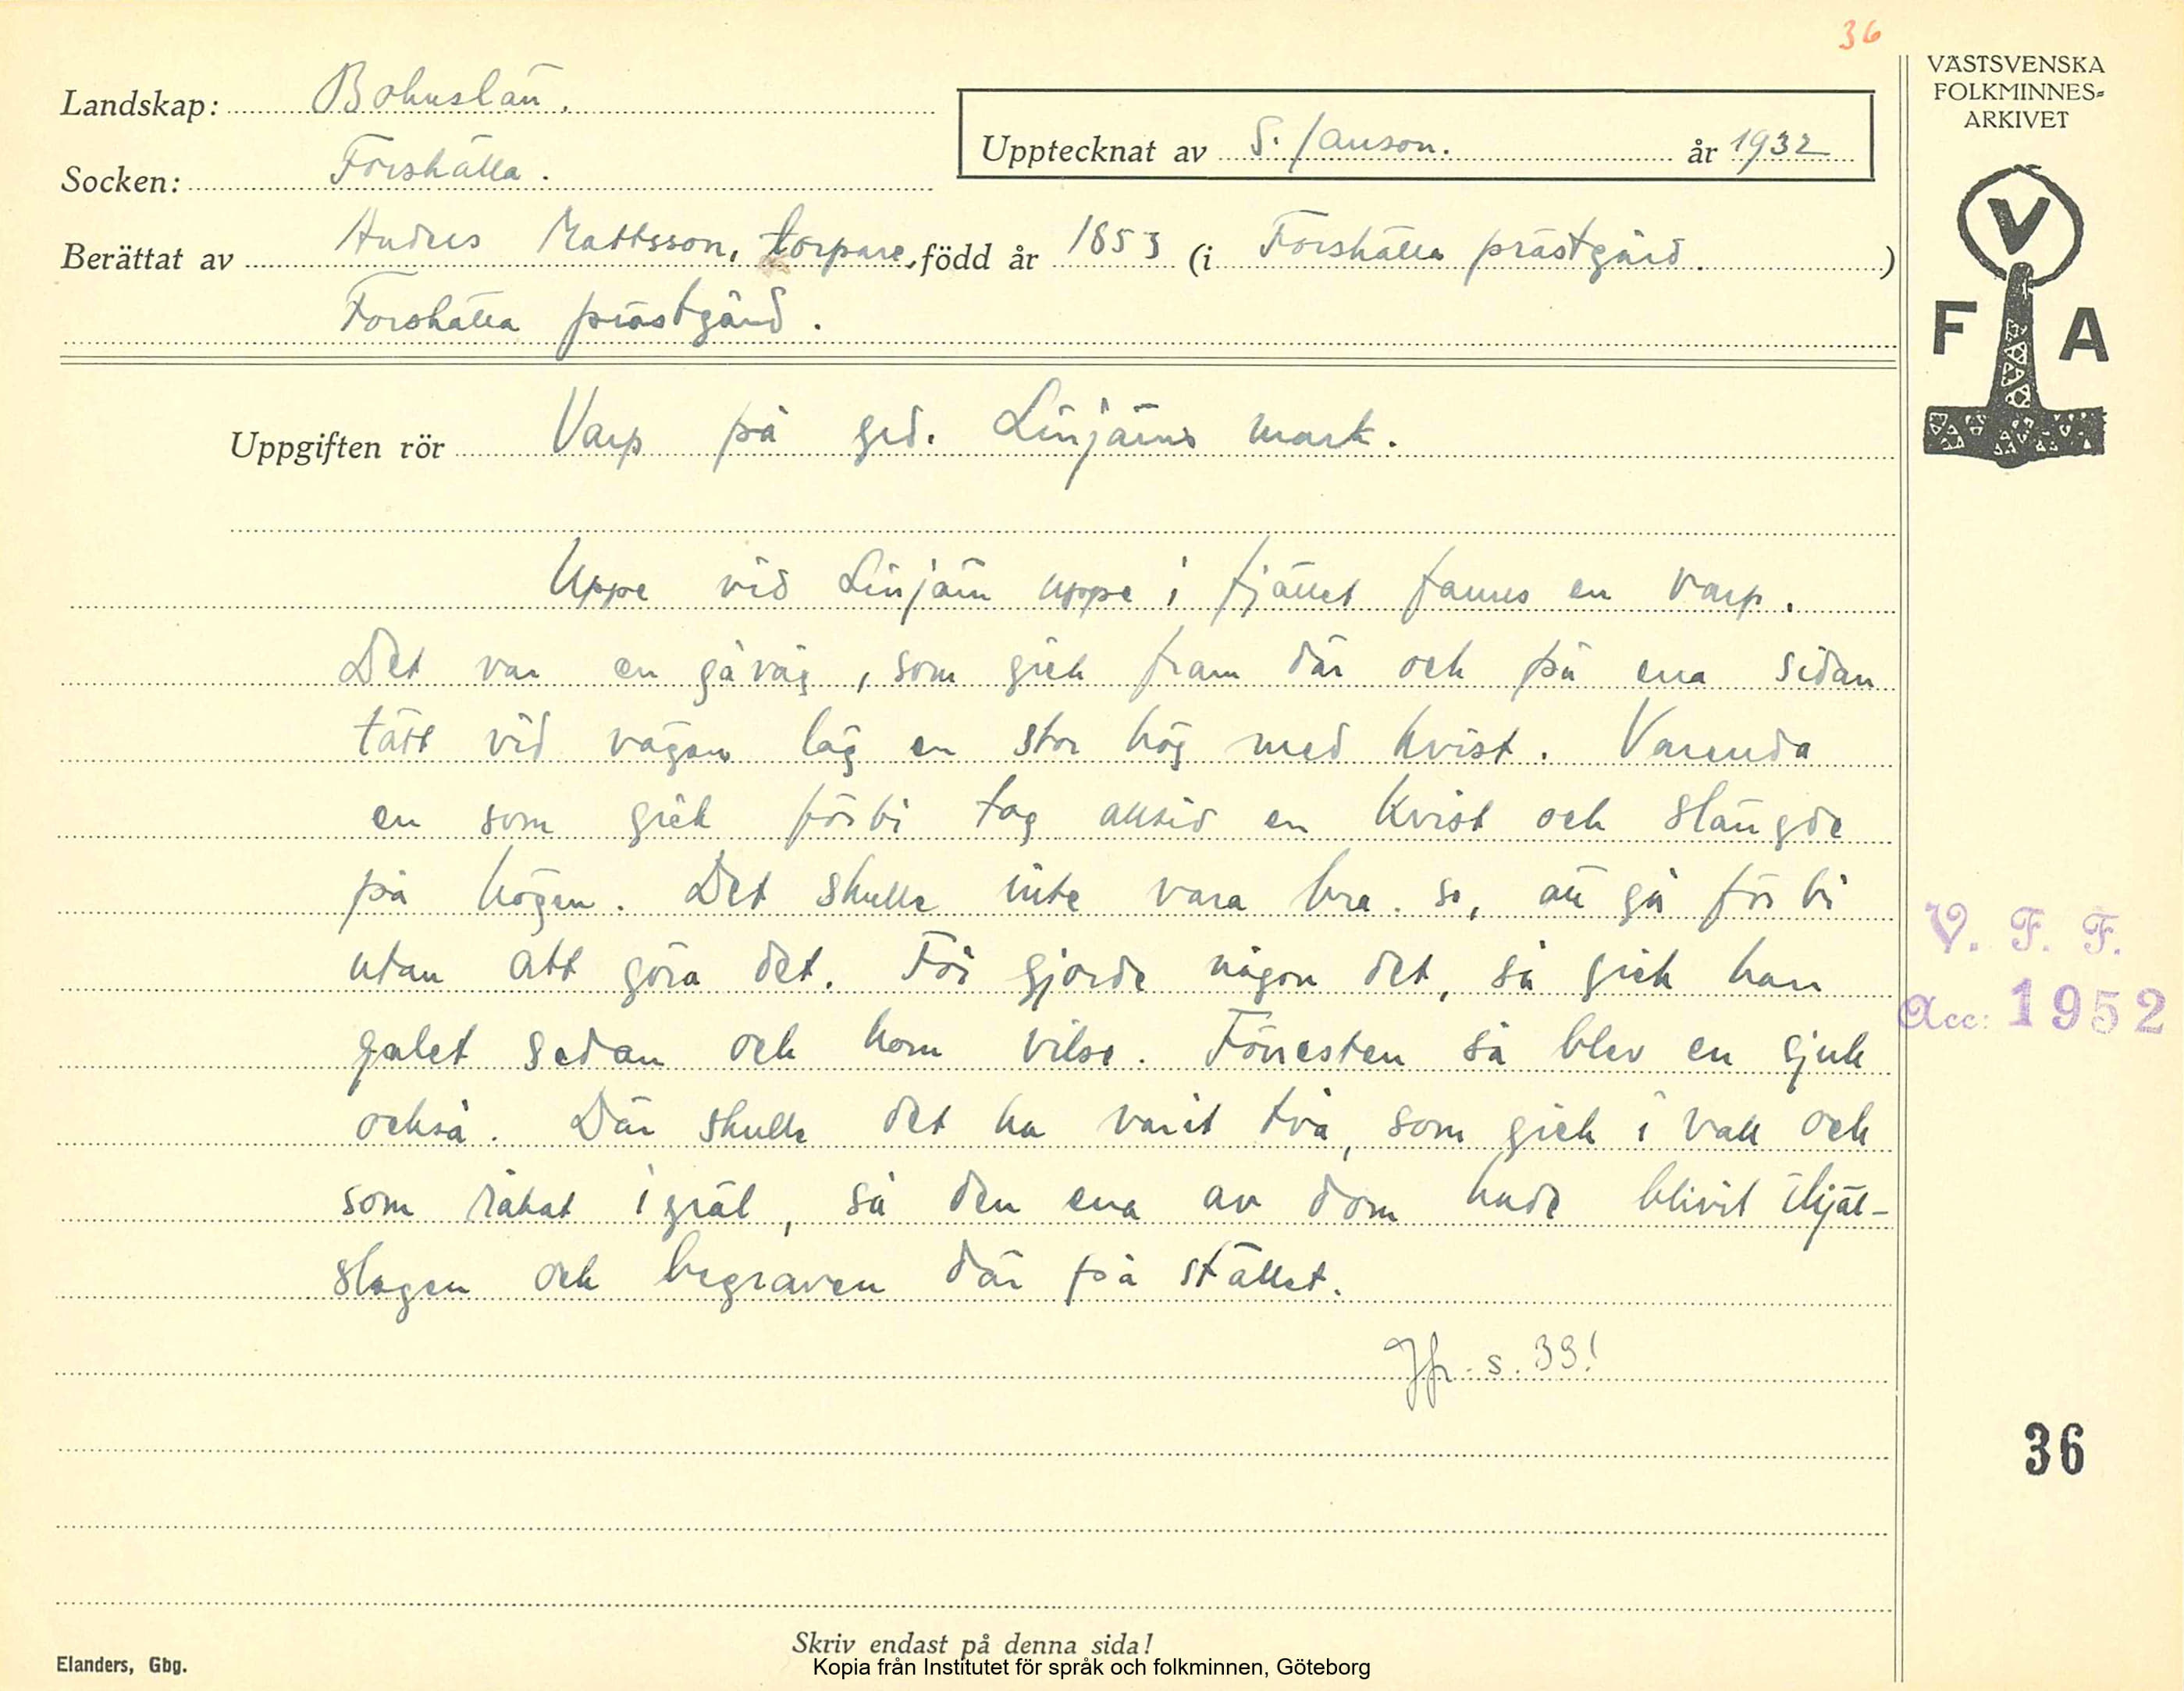 36
VÄSTSVENSKA
FOLKMINNES-
ARKIVET
Landskap: Bohuslän.
Upptecknat av S. Janson. år 1932
Socken: Forshälla.
Berättat av Anders Mattsson, torpare, född år 1853 (i Forshälla prästgård.)
Forshälla prästgård.
V
F A
Uppgiften rör Varp på grd. Linjärns mark.
Uppe vid Linjärn uppe i fjället fanns en varp.
Det var en gåväg, som gick fram där och på ena sidan
tätt vid vägen låg en stor hög med kvist. Varenda
en som gick förbi tog alltid en kvist och slängde
på högen. Det skulle inte vara bra so, att gå förbi
utan att göra det. För gjorde någon det, så gick han
galet sedan och kom vilse. Förresten så blev en sjuk
också. Där skulle det ha varit två, som gick i vall och
som råkat i gräl, så den ena av dom hade blivit ihjäl-
slagen och begraven där på stället.
Jfr. s. 39!
V. F. F.
Acc: 1952
36
Skriv endast på denna sida!
Elanders, Gbg.
Kopia från Institutet för språk och folkminnen, Göteborg